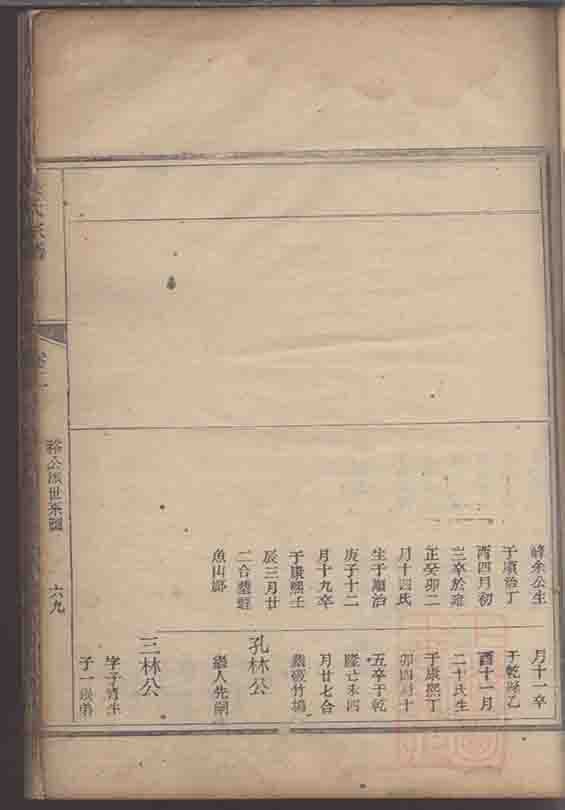 峰余公生
于順治丁
酉四月初
三卒於雍
正癸卯二
月十四氏
生于順治
庚子十二
月十九卒
于康熙壬
辰三月廿
二合塟
魚山
月十一卒
于乾隆乙
酉十一月
二十氏生
于康熙丁
卯四月十
五卒于乾
隆己未四
月廿七合
塟破竹塢
孔林公
三林公
字子青生
子一
氏宗譜
卷二
裕公派世系圖
六九